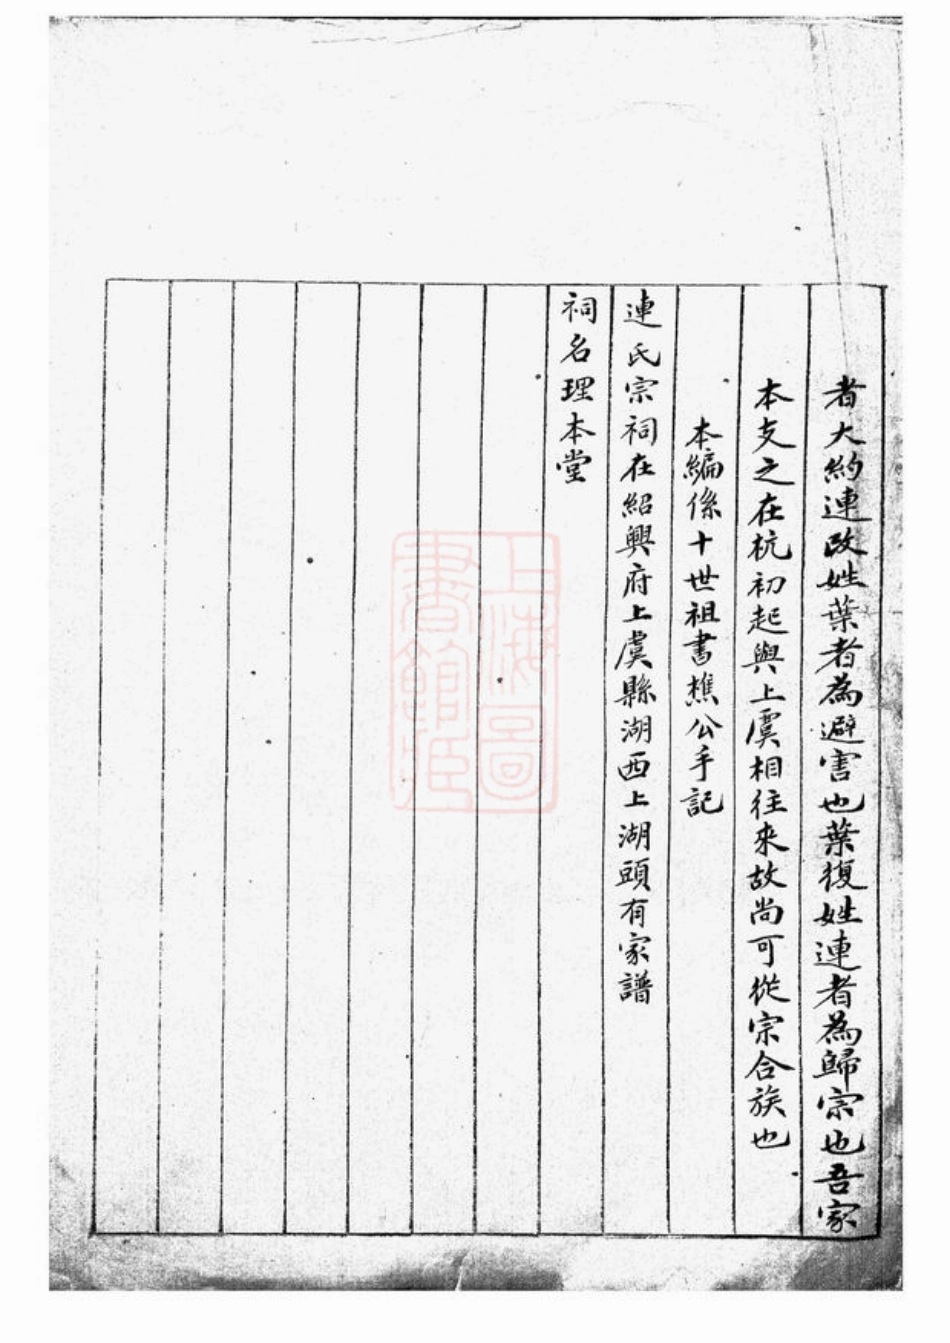 者大約連改姓葉者為避害也葉復姓連者為歸宗也吾家
本支之在杭初起與上虞相往來故尚可從宗合族也
本編係十世祖書樵公手記
連氏宗祠在紹興府上虞縣湖西上湖頭有家譜
祠名理本堂
上海圖
書館藏